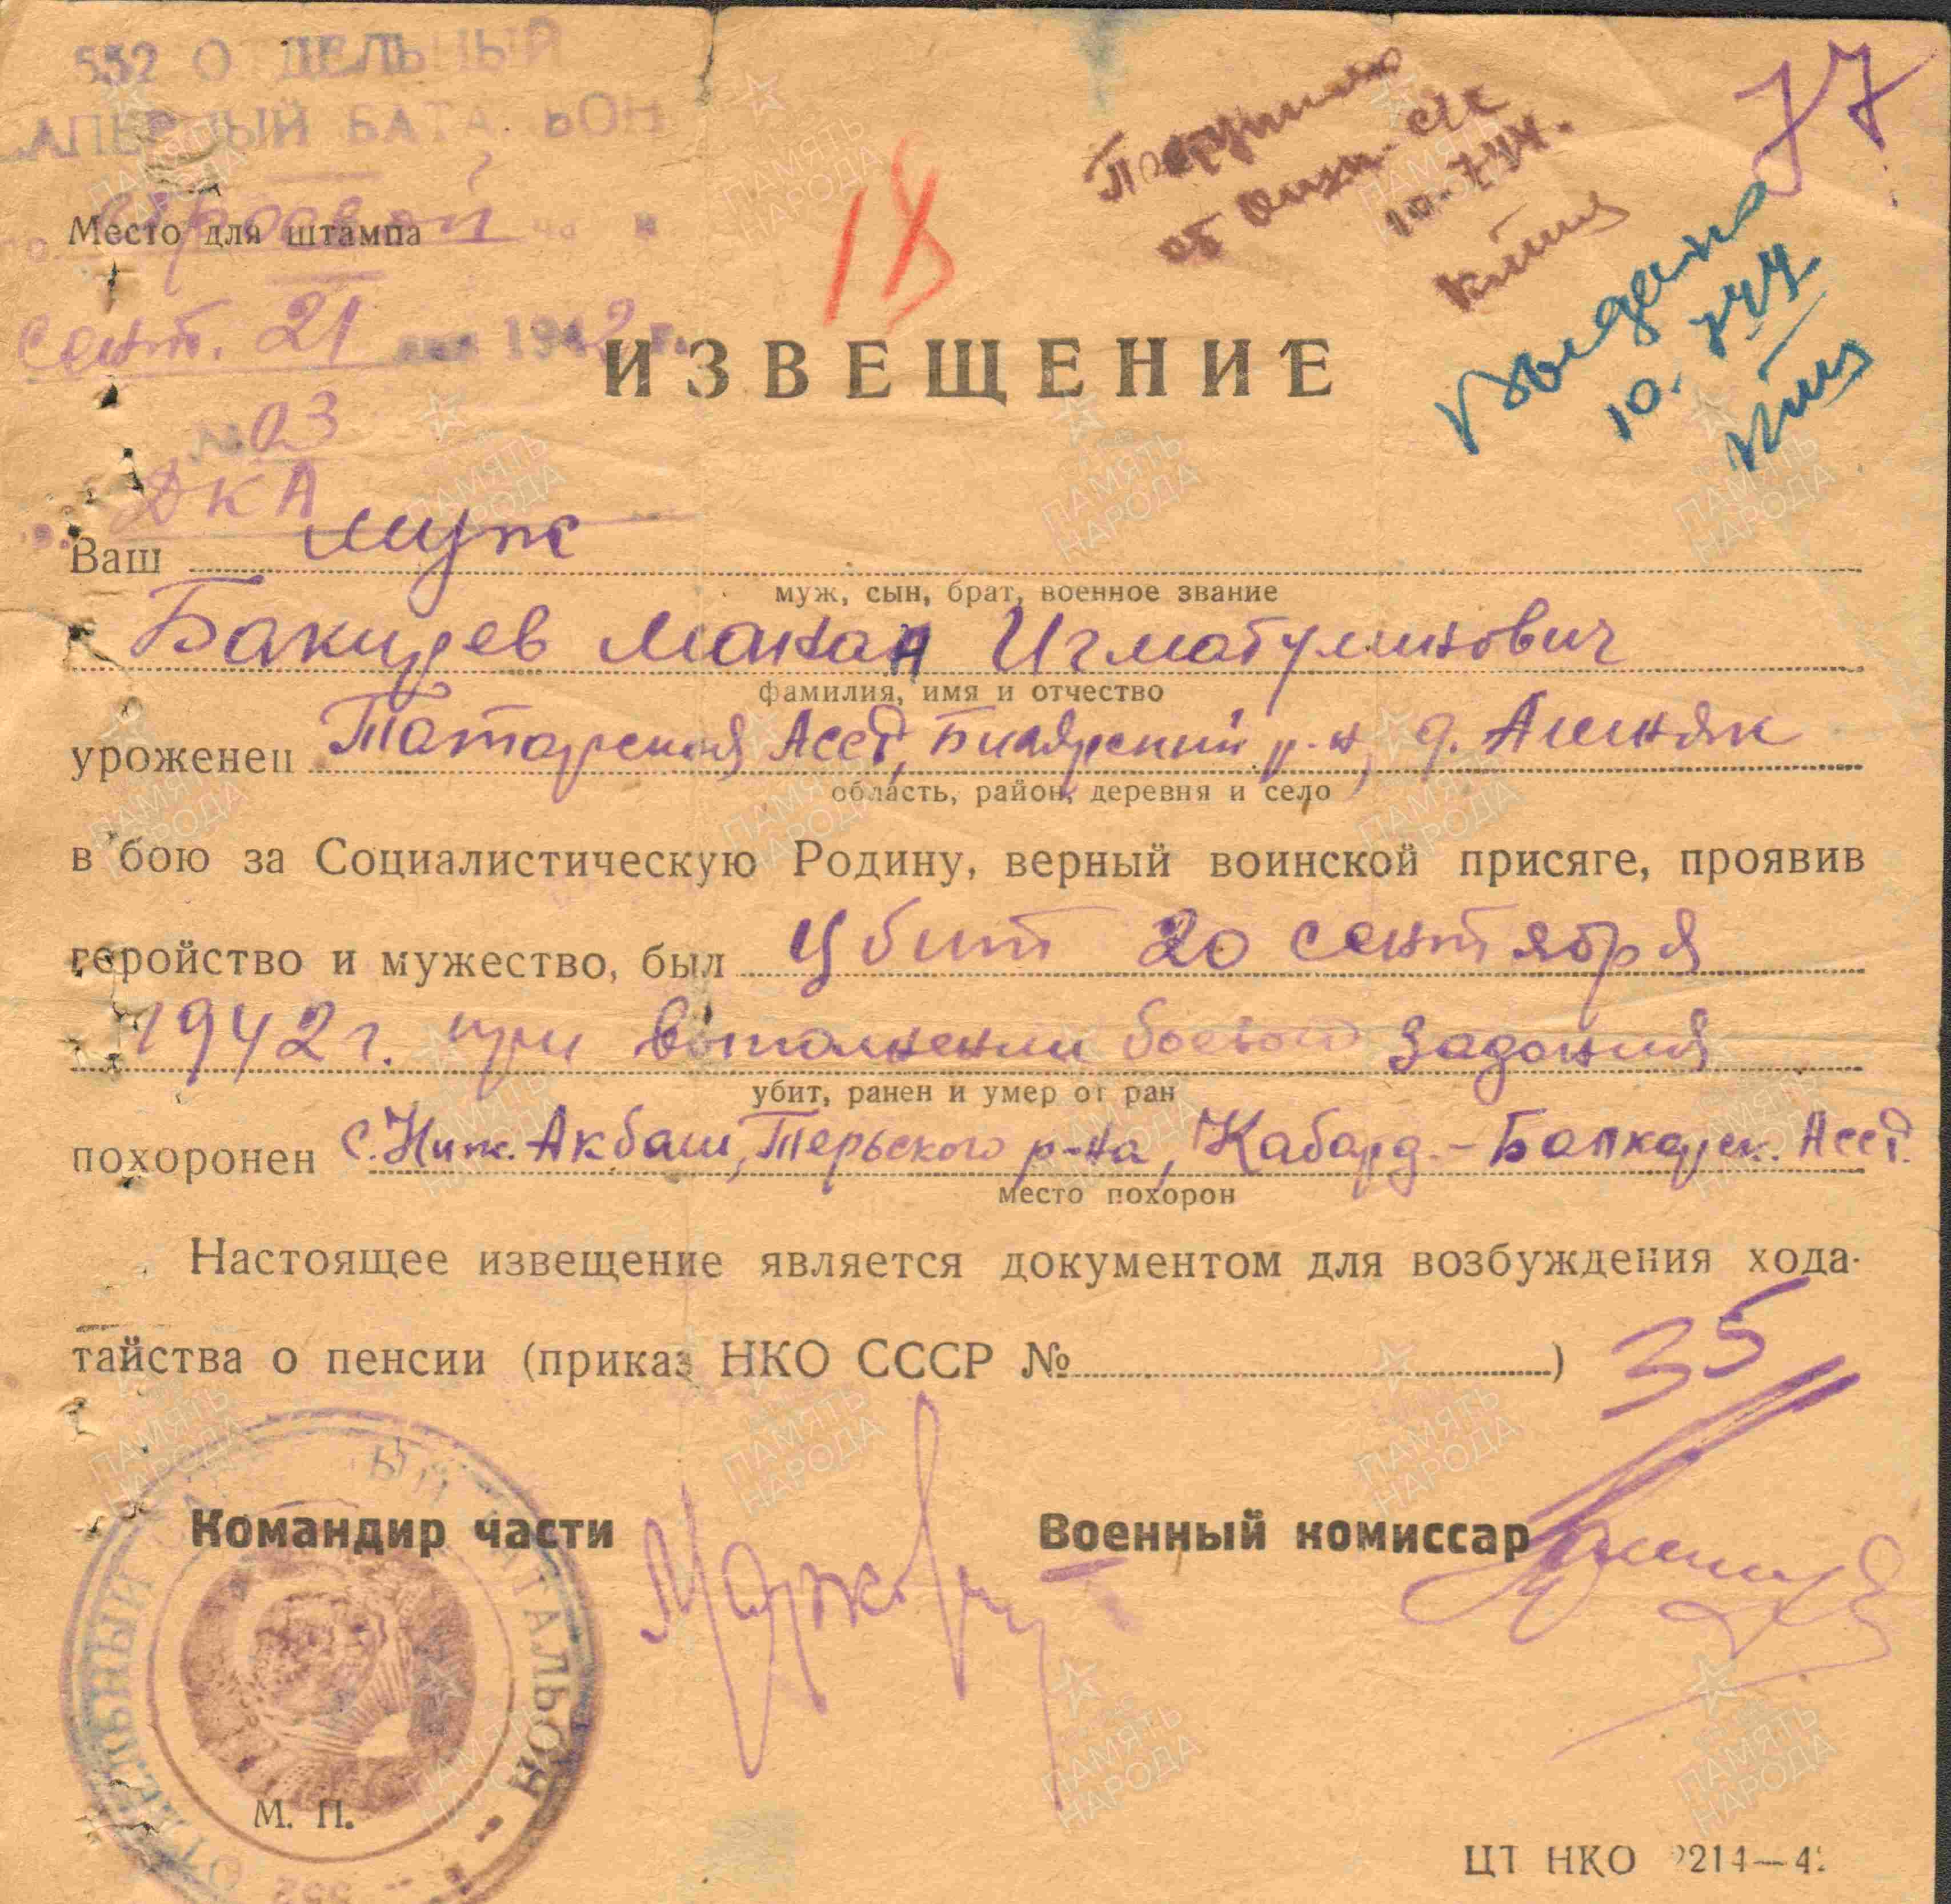 552 ОТДЕЛЬНЫЙ
САПЕРНЫЙ БАТАЛЬОН
Место для штампа
Сент. 21 дня 1942 г.
№ 03
ДКА
18
77
10. 7 44.
Выдано
10. 7 44
ИЗВЕЩЕНИЕ
Ваш муж
муж, сын, брат, военное звание
Бакиров Манан Игматулинович
фамилия, имя и отчество
уроженец Татарская АССР, Билярский р-н, д.
область, район, деревня и село
в бою за Социалистическую Родину, верный воинской присяге, проявив
геройство и мужество, был Убит 20 сентября
1942 г. при выполнении боевого задания
убит, ранен и умер от ран
похоронен с. Ниж. Акбаш, Терьского р-на, Кабард.-Балкарск. АССР.
место похорон
Настоящее извещение является документом для возбуждения хода-
тайства о пенсии (приказ НКО СССР № )
35
Командир части
Военный комиссар
ОТДЕЛЬНЫЙ БАТАЛЬОН
552
М. П.
ЦТ НКО 214—4
ПАМЯТЬ НАРОДА